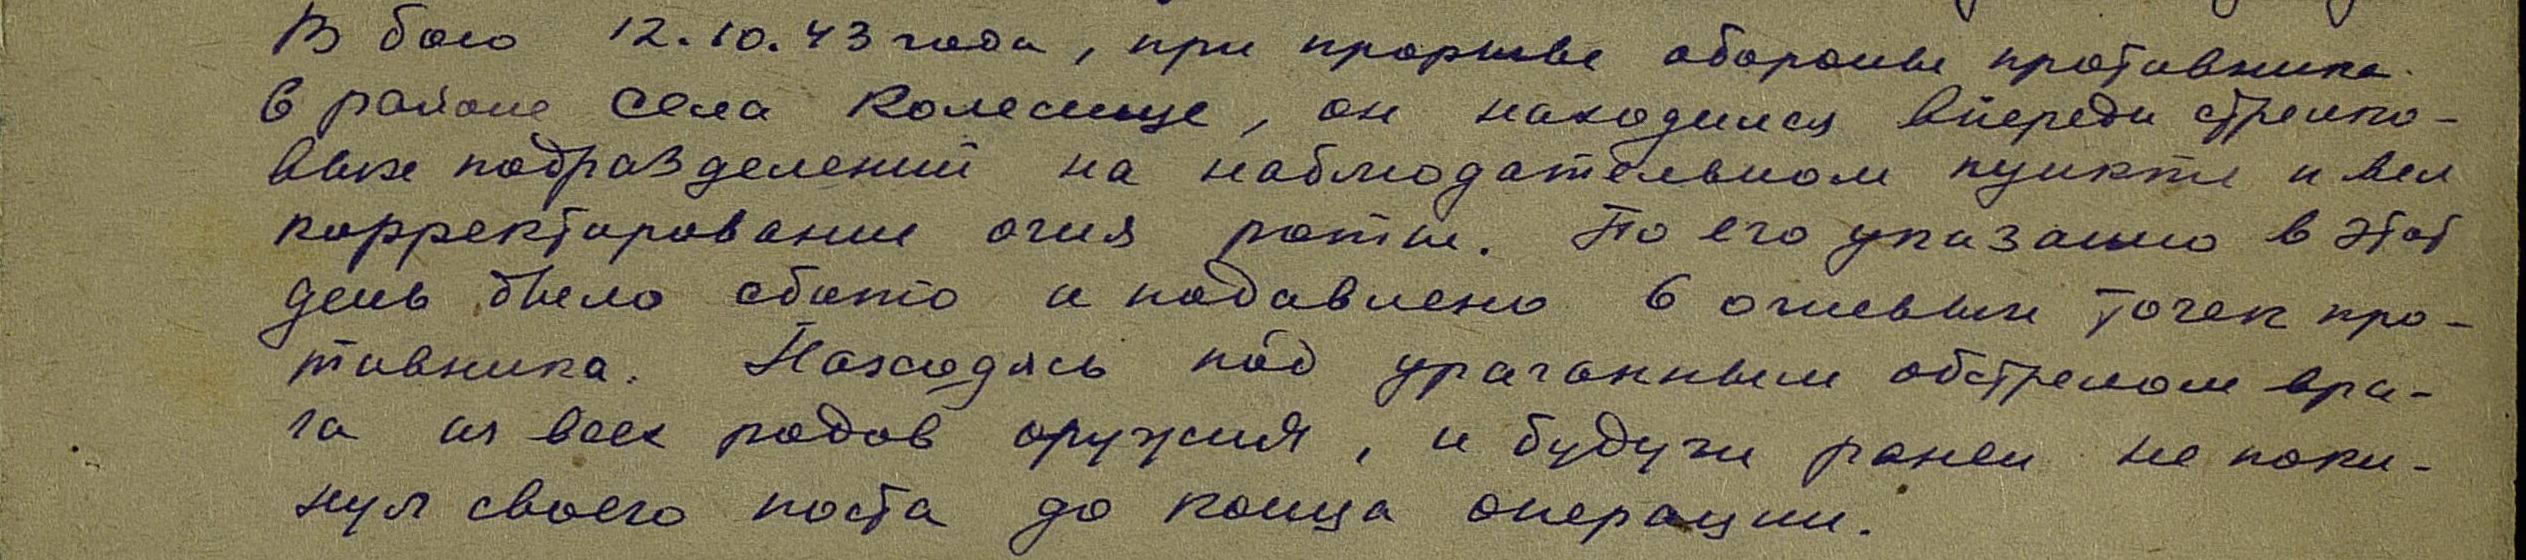 В бою 12.10.43 года, при прорыве обороны противника
в районе села Колесище, он находился впереди стрелко-
вых подразделений на наблюдательном пункте и вел
корректирование огня роты. По его указанию в этот
день было сбито и подавлено 6 огневых точек про-
тивника. Находясь под ураганным обстрелом вра-
га из всех родов оружия, и будучи ранен не поки-
нул своего поста до конца операции.